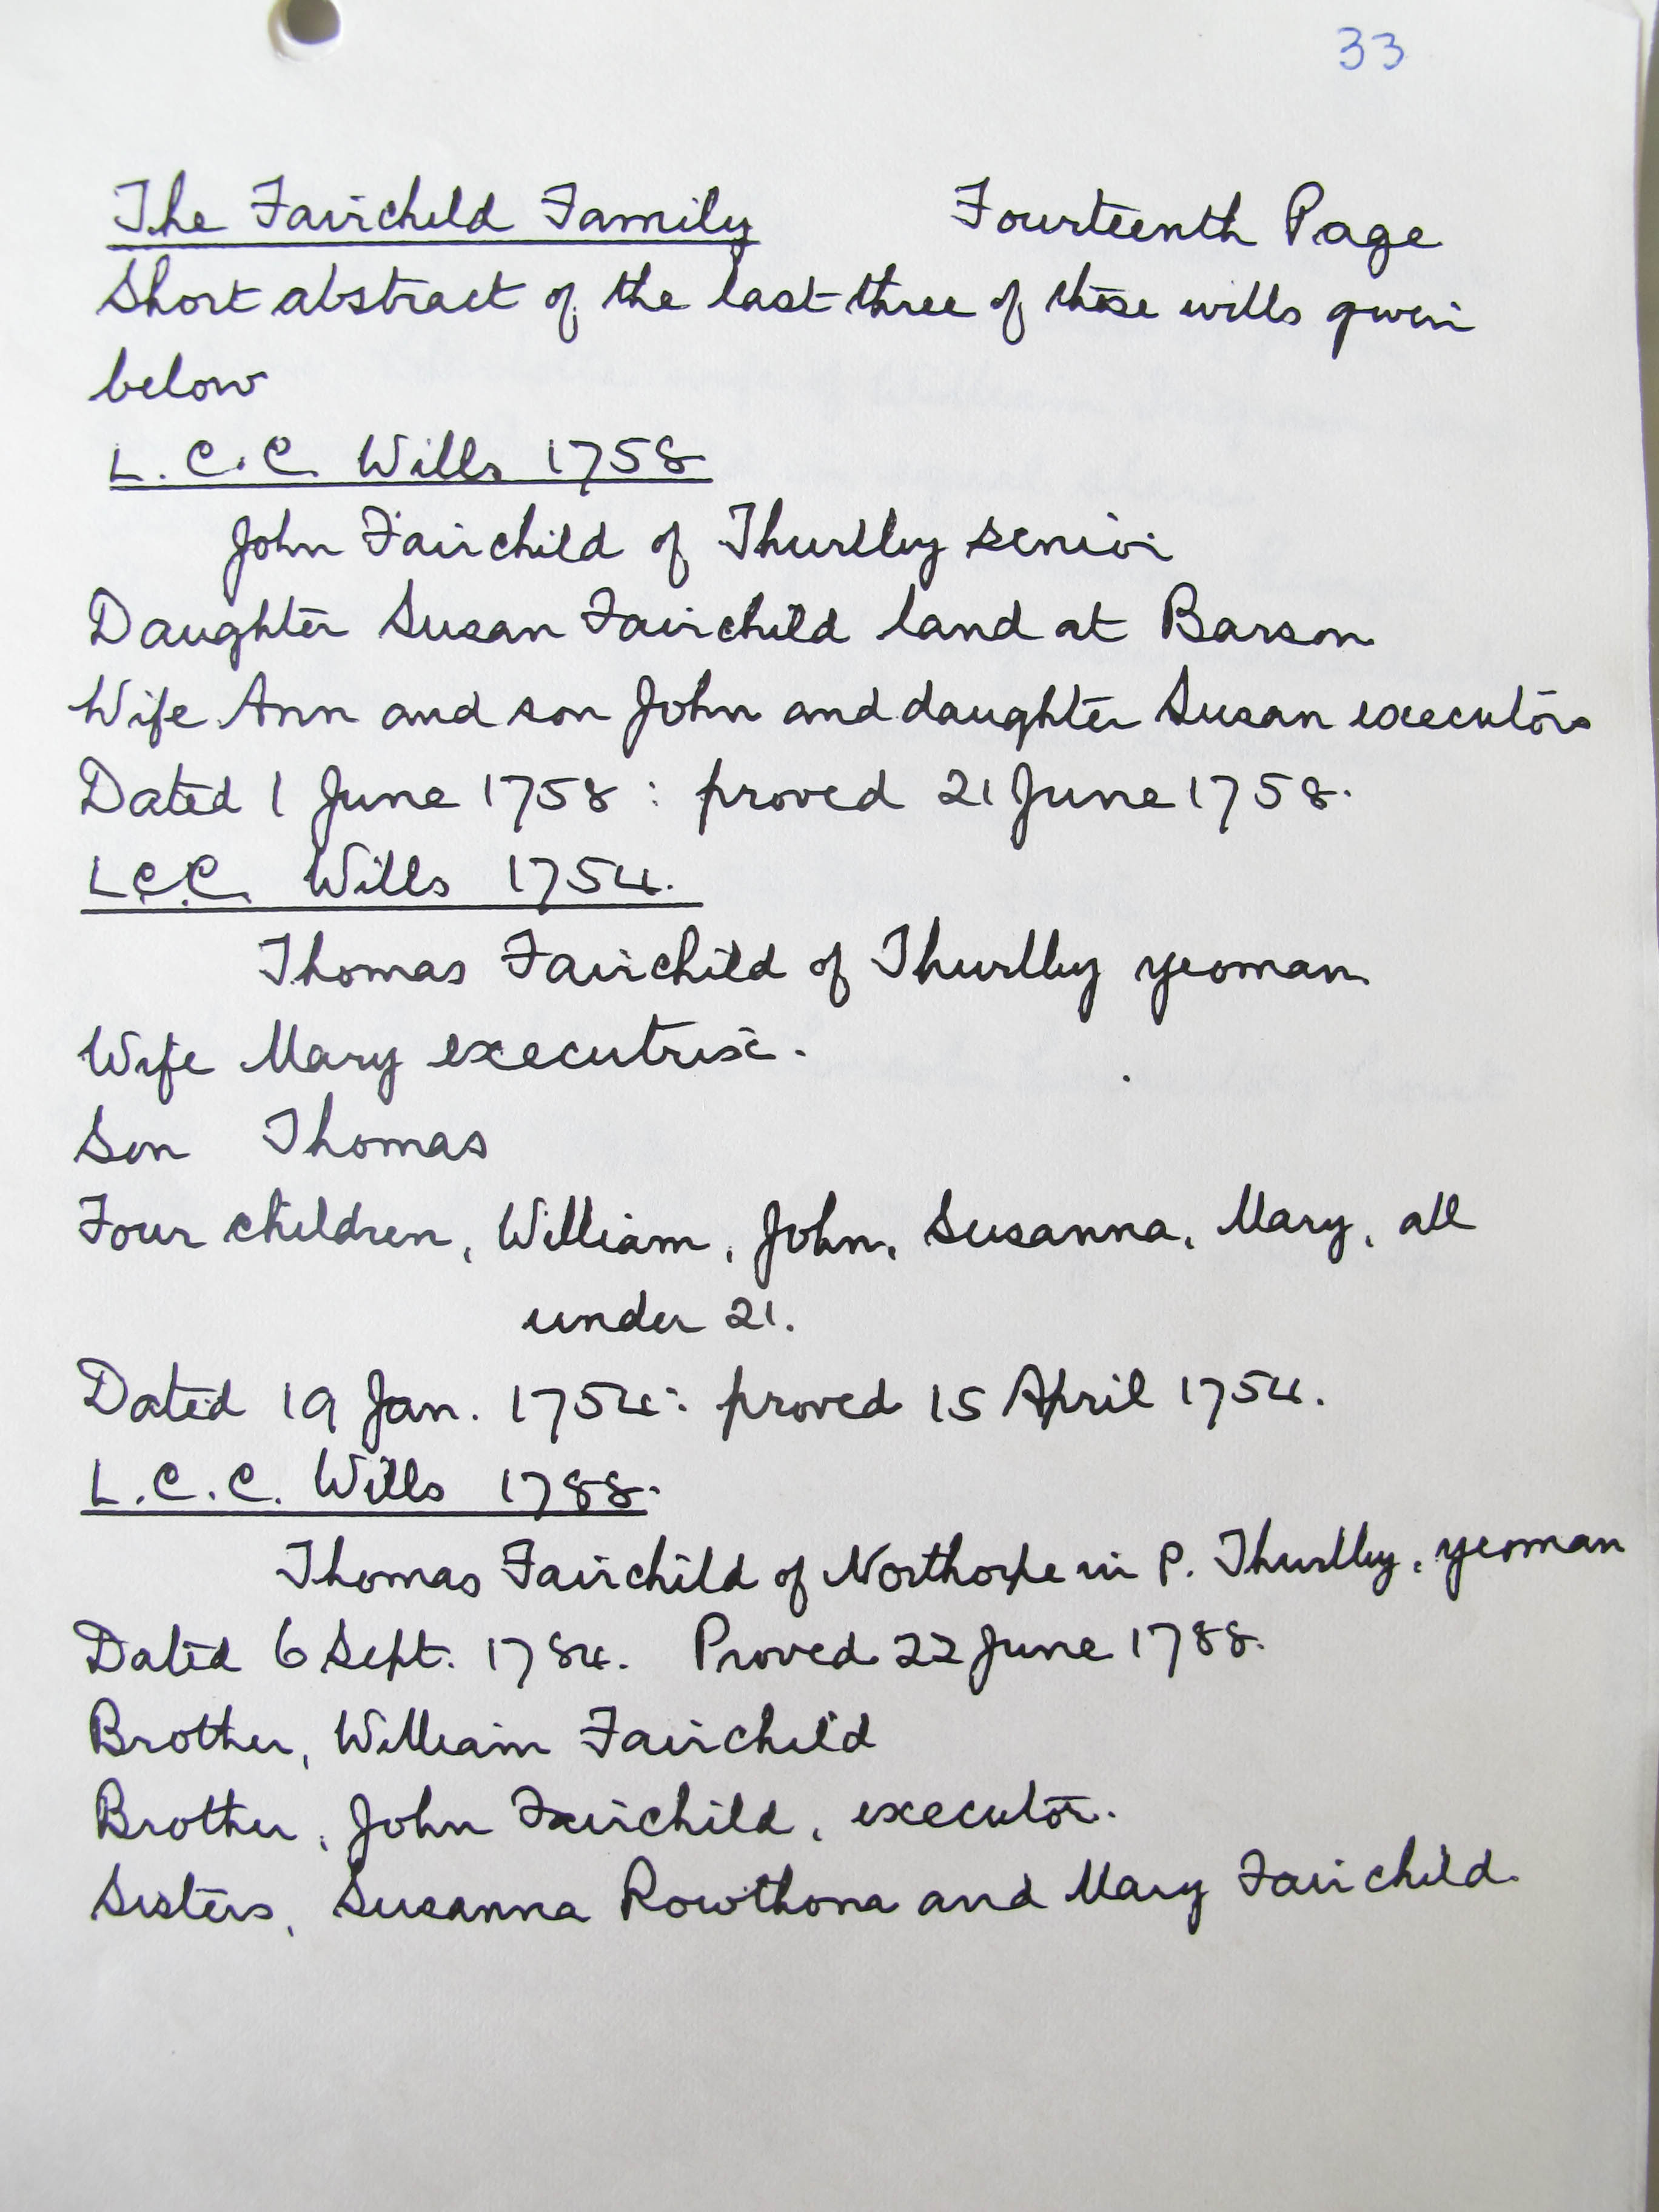 33
The Fairchild Family Fourteenth Page
Short abstract of the last three of these wills given
below
L.C.C. Wills 1758
John Fairchild of Thurlby senior
Daughter Susan Fairchild land at Barson
Wife Ann and son John and daughter Susan executors
Dated 1 June 1758 : proved 21 June 1758.
L.C.C. Wills 1754.
Thomas Fairchild of Thurlby yeoman
Wife Mary executrix.
Son Thomas
Four children, William, John, Susanna, Mary, all
under 21.
Dated 19 Jan. 1754: proved 15 April 1754.
L.C.C. Wills 1788.
Thomas Fairchild of Northorpe in P. Thurlby, yeoman
Dated 6 Sept. 1784. Proved 22 June 1788.
Brother, William Fairchild
Brother, John Fairchild, executor.
Sisters, Susanna Rowthona and Mary Fairchild.